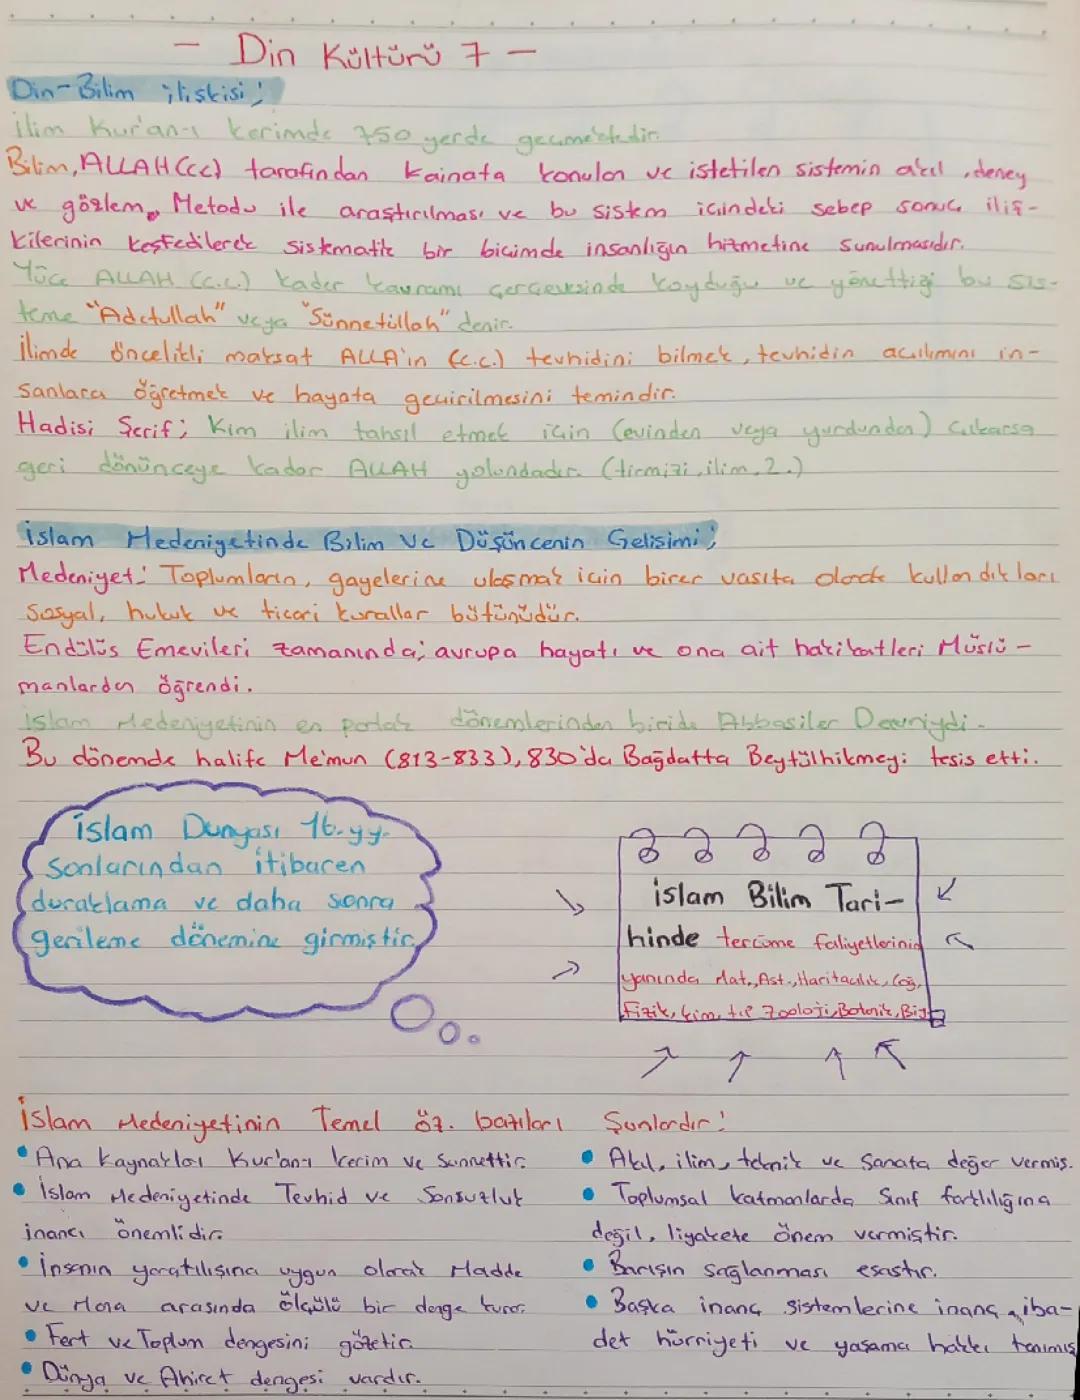 - Din Kültürü 7 -
Din-Bilim ilişkisi;
ilim Kur'an-ı kerimde 750 yerde geçmektedir.
Bilim, ALLAH(cc) tarafından kainata konulan ve istetilen sistemin akıl, deney
ve gözlem, Metodu ile araştırılması ve bu sistem içindeki sebep sonuç iliş-
kilerinin keşfedilerek sistematik bir biçimde insanlığın hizmetine sunulmasıdır.
Yüce ALLAH (c.c.) kader kavramı çerçevesinde koyduğu ve yönettiği bu sis-
teme "Adetullah" veya "Sünnetüllah" denir.
İlimde öncelikli maksat ALLA'ın (c.c.) tevhidini bilmek, tevhidin açılımını in-
sanlara öğretmek ve hayata geçirilmesini temindir.
Hadisi Şerif; Kim ilim tahsil etmek için (evinden veya yurdundan) çıkarsa
geri dönünceye kadar ALLAH yolundadır. (tirmizi, ilim, 2.)
İslam Medeniyetinde Bilim Ve Düşüncenin Gelişimi;
Medeniyet: Toplumların, gayelerine ulaşmak için birer vasıta olarak kullandıkları
sosyal, hukuk ve ticari kurallar bütünüdür.
Endülüs Emevileri zamanında; avrupa hayatı ve ona ait hakikatleri Müslü-
manlardan öğrendi.
İslam Medeniyetinin en parlak dönemlerinden biride Abbasiler Devriydi.
Bu dönemde halife Me'mun (813-833), 830'da Bağdatta Beytülhikmeyi tesis etti.
İslam Dünyası 16.yy.
Sonlarından itibaren
duraklama ve daha sonra
gerileme dönemine girmiştir.
İslam Bilim Tari-
hinde tercüme faliyetlerinin
yanında Mat., Ast., Haritacılık, Coğ,
Fizik, kim, tıp Zooloji, Botanik, Biy
İslam Medeniyetinin Temel öz. bazıları Şunlardır:
• Ana kaynakları Kur'an-ı kerim ve Sünnettir.
• İslam Medeniyetinde Tevhid ve Sonsuzluk
inancı önemlidir.
• İnsanın yaratılışına uygun olarak Madde
ve Mana arasında ölçülü bir denge kurar.
• Fert ve Toplum dengesini gözetir.
• Dünya ve Ahiret dengesi vardır.
• Akıl, ilim, teknik ve Sanata değer vermiş.
• Toplumsal katmanlarda Sınıf farklılığına
değil, liyakete önem vermiştir.
• Barışın sağlanması esastır.
• Başka inanç sistemlerine inanç, iba-
det hürriyeti ve yaşama hakkı tanımış